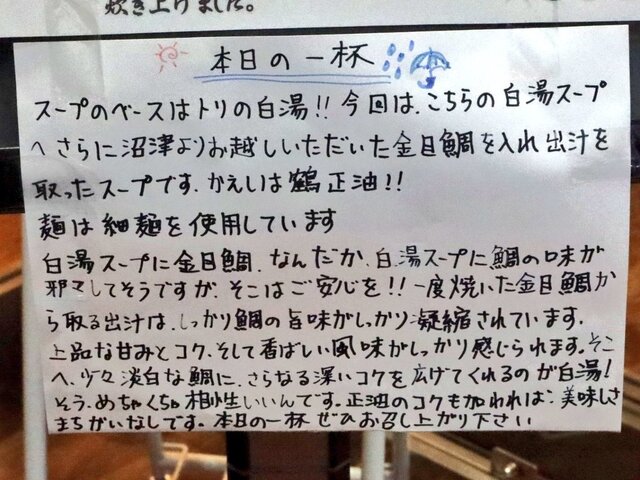 炊き上げました。
本日の一杯
スープのベースはトリの白湯!! 今回は、こちらの白湯スープ
へさらに沼津よりお越しいただいた金目鯛を入れ出汁を
取ったスープです。かえしは鶴正油!!
麺は細麺を使用しています
白湯スープに金目鯛、なんだか、白湯スープに鯛の味が
邪マしてそうですが、そこはご安心を!! 一度焼いた金目鯛か
ら取る出汁は、しっかり鯛の旨味がしっかり凝縮されています。
上品な甘みとコク、そして香ばしい風味がしっかり感じられます。そこ
へ、少々淡白な鯛に、さらなる深いコクを広げてくれるのが白湯!
そう、めちゃくちゃ相性いいんです。正油のコクも加われば、美味しさ
まちがいなしです。本日の一杯 ぜひお召し上がり下さい